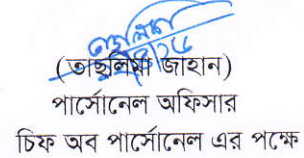 (তাছলিমা জাহান)
পার্সোনেল অফিসার
চিফ অব পার্সোনেল এর পক্ষে